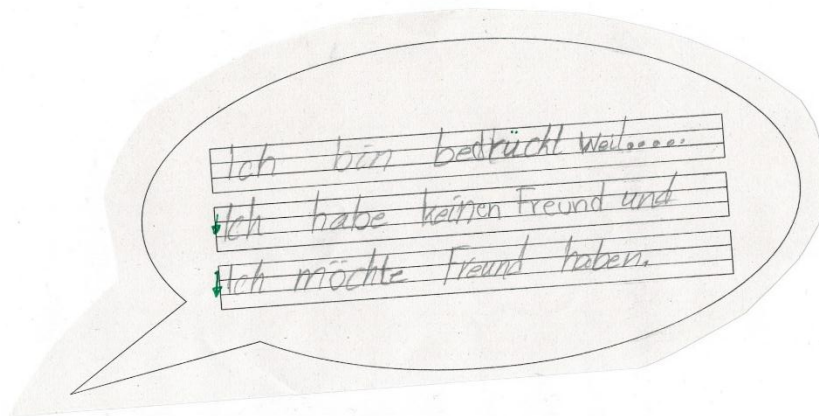 Ich bin bedrückt weil.....
Ich habe keinen Freund und
Ich möchte Freund haben.